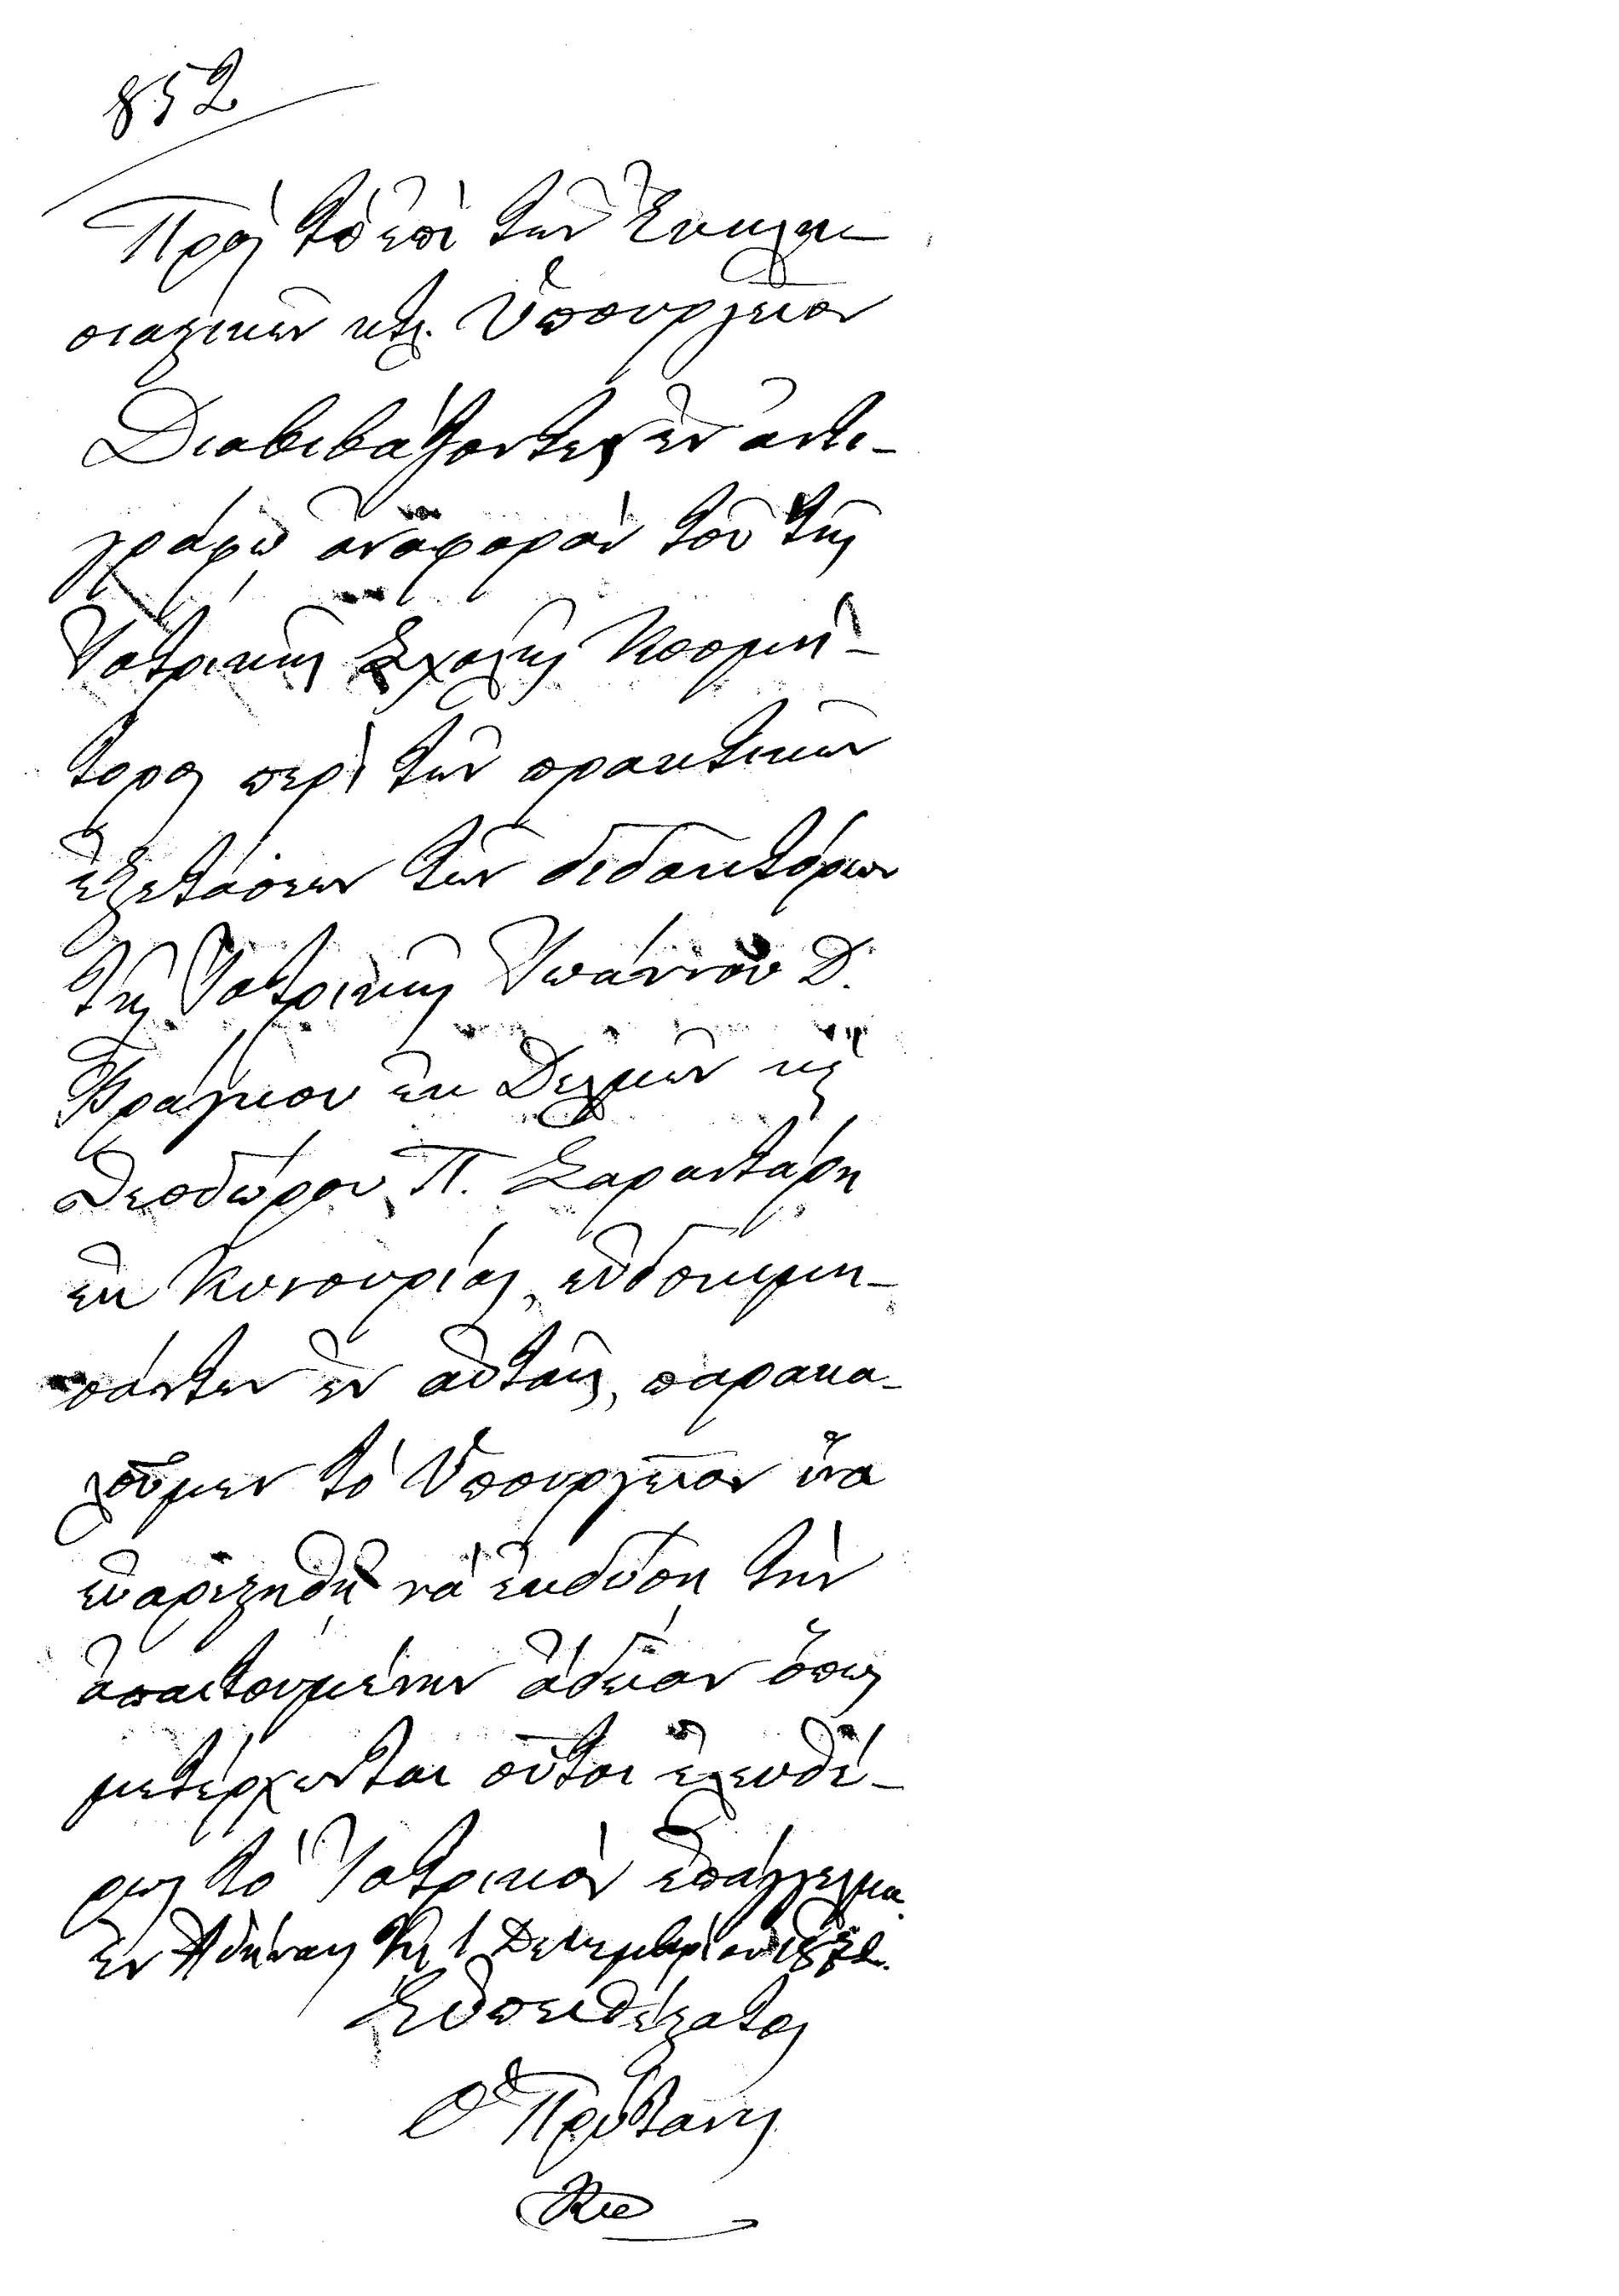 852
Πρὸς τὸ ἐπὶ τῶν Ἐκκλη-
σιαστικῶν κτλ. Ὑπουργεῖον
Διαβιβάζοντες ἐν ἀντι-
γράφῳ ἀναφορὰν τοῦ τῆς
Ἰατρικῆς Σχολῆς Κοσμή-
τορος περὶ τῶν πρακτικῶν
ἐξετάσεων τῶν διδακτόρων
τῆς Ἰατρικῆς Ἰωάννου Δ.
ἐκ καὶ
Θεοδώρου Π. Σαραντάρη
ἐκ Κυνουρίας, εὐδοκιμη-
σάντων ἐν αὐταῖς, παρακα-
λοῦμεν τὸ Ὑπουργεῖον ἵνα
εὐαρεστηθῇ νὰ ἐκδώσῃ τὴν
ἀπαιτουμένην ἄδειαν ὅπως
μετέρχωνται οὗτοι ἐλευθέ-
ρως τὸ Ἰατρικὸν ἐπάγγελμα.
Ἐν Ἀθήναις τῇ 1 Δεκεμβρίου
Εὐπειθέστατος
Ὁ Πρύτανις